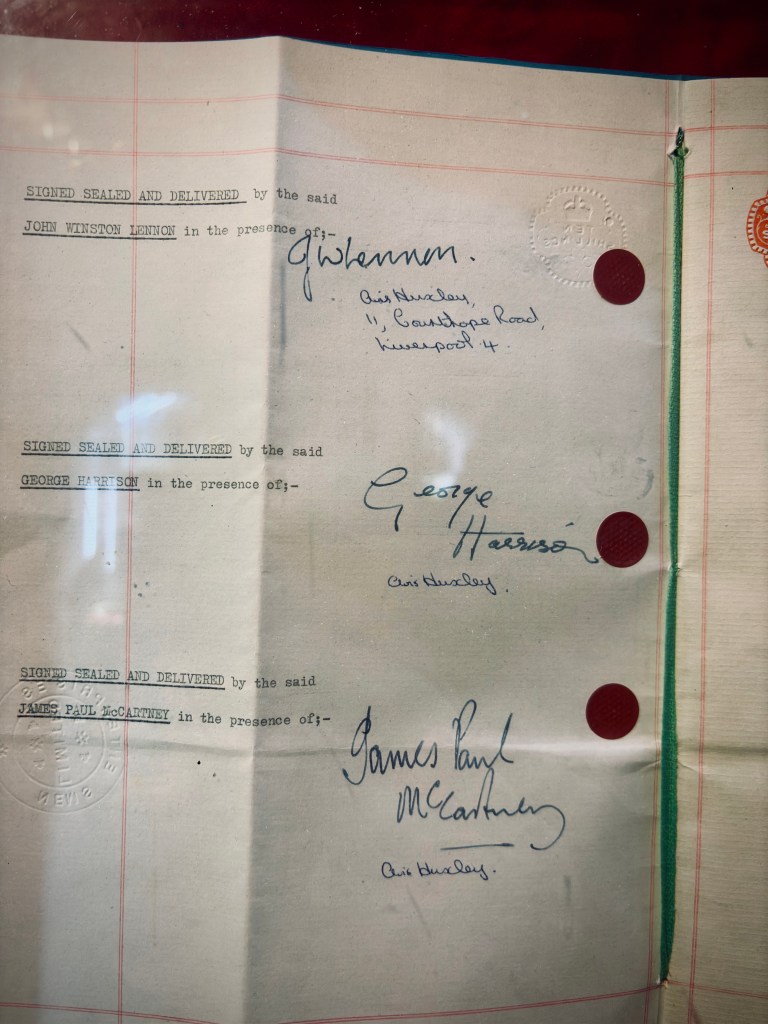 SIGNED SEALED AND DELIVERED by the said
JOHN WINSTON LENNON in the presence of;-
JWLennon.
Avis Huxley,
11, Courthope Road,
Liverpool 4.
TEN
SHILLINGS
SIGNED SEALED AND DELIVERED by the said
GEORGE HARRISON in the presence of;-
George
Harrison
Avis Huxley.
SIGNED SEALED AND DELIVERED by the said
JAMES PAUL McCARTNEY in the presence of;-
James Paul
McCartney
Avis Huxley.